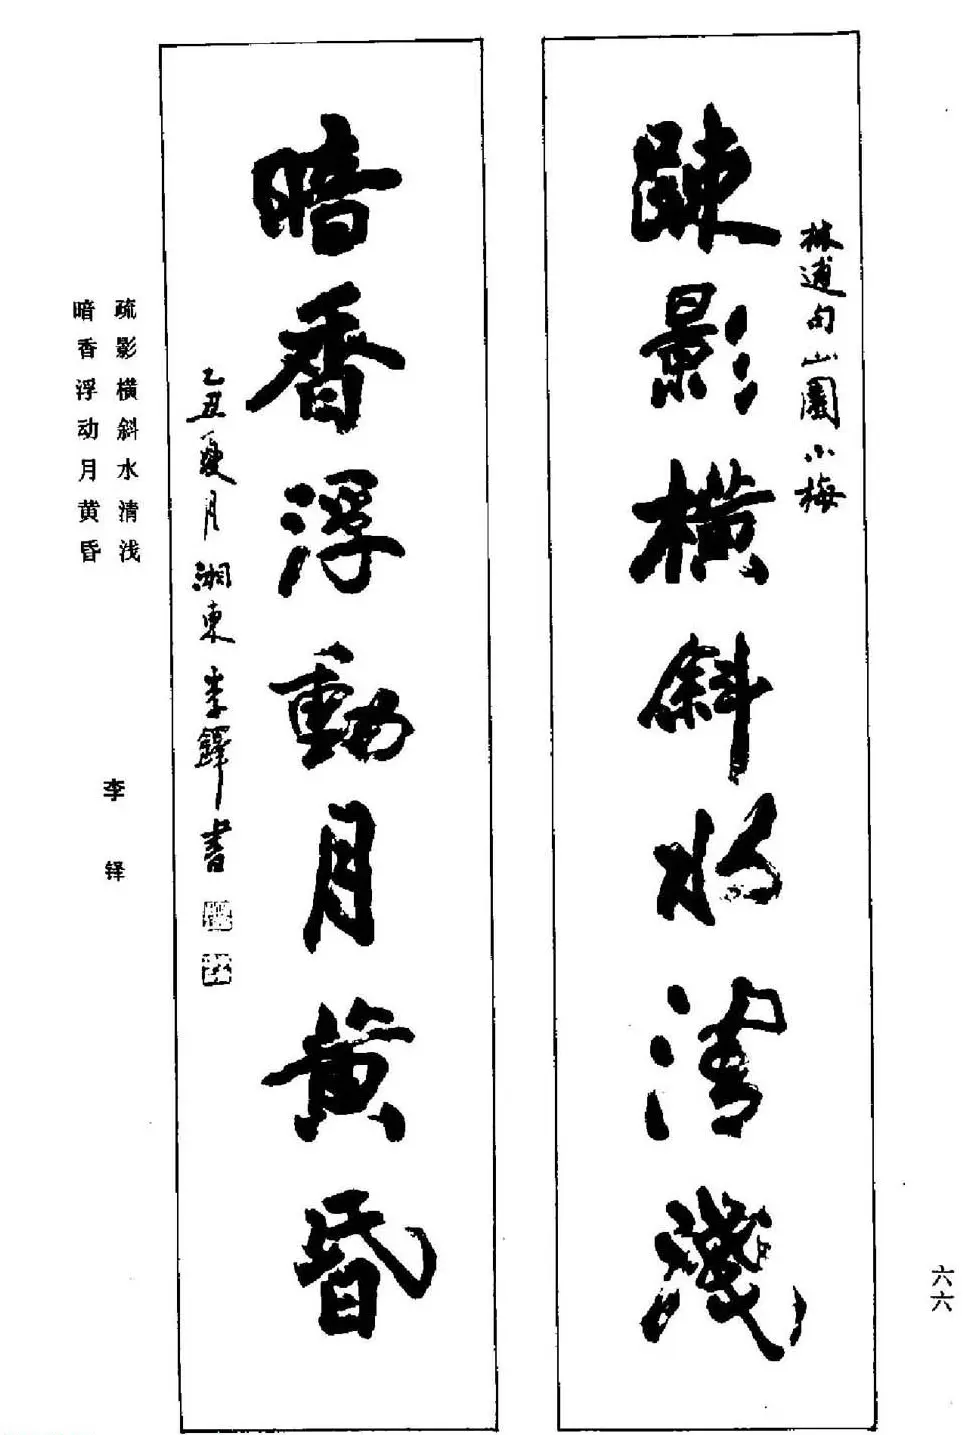 林逋句山園小梅
踈影橫斜水清淺
暗香浮動月黄昏
乙丑夏月湘東李鐸書
疏影横斜水清浅
暗香浮动月黄昏
李铎
六六